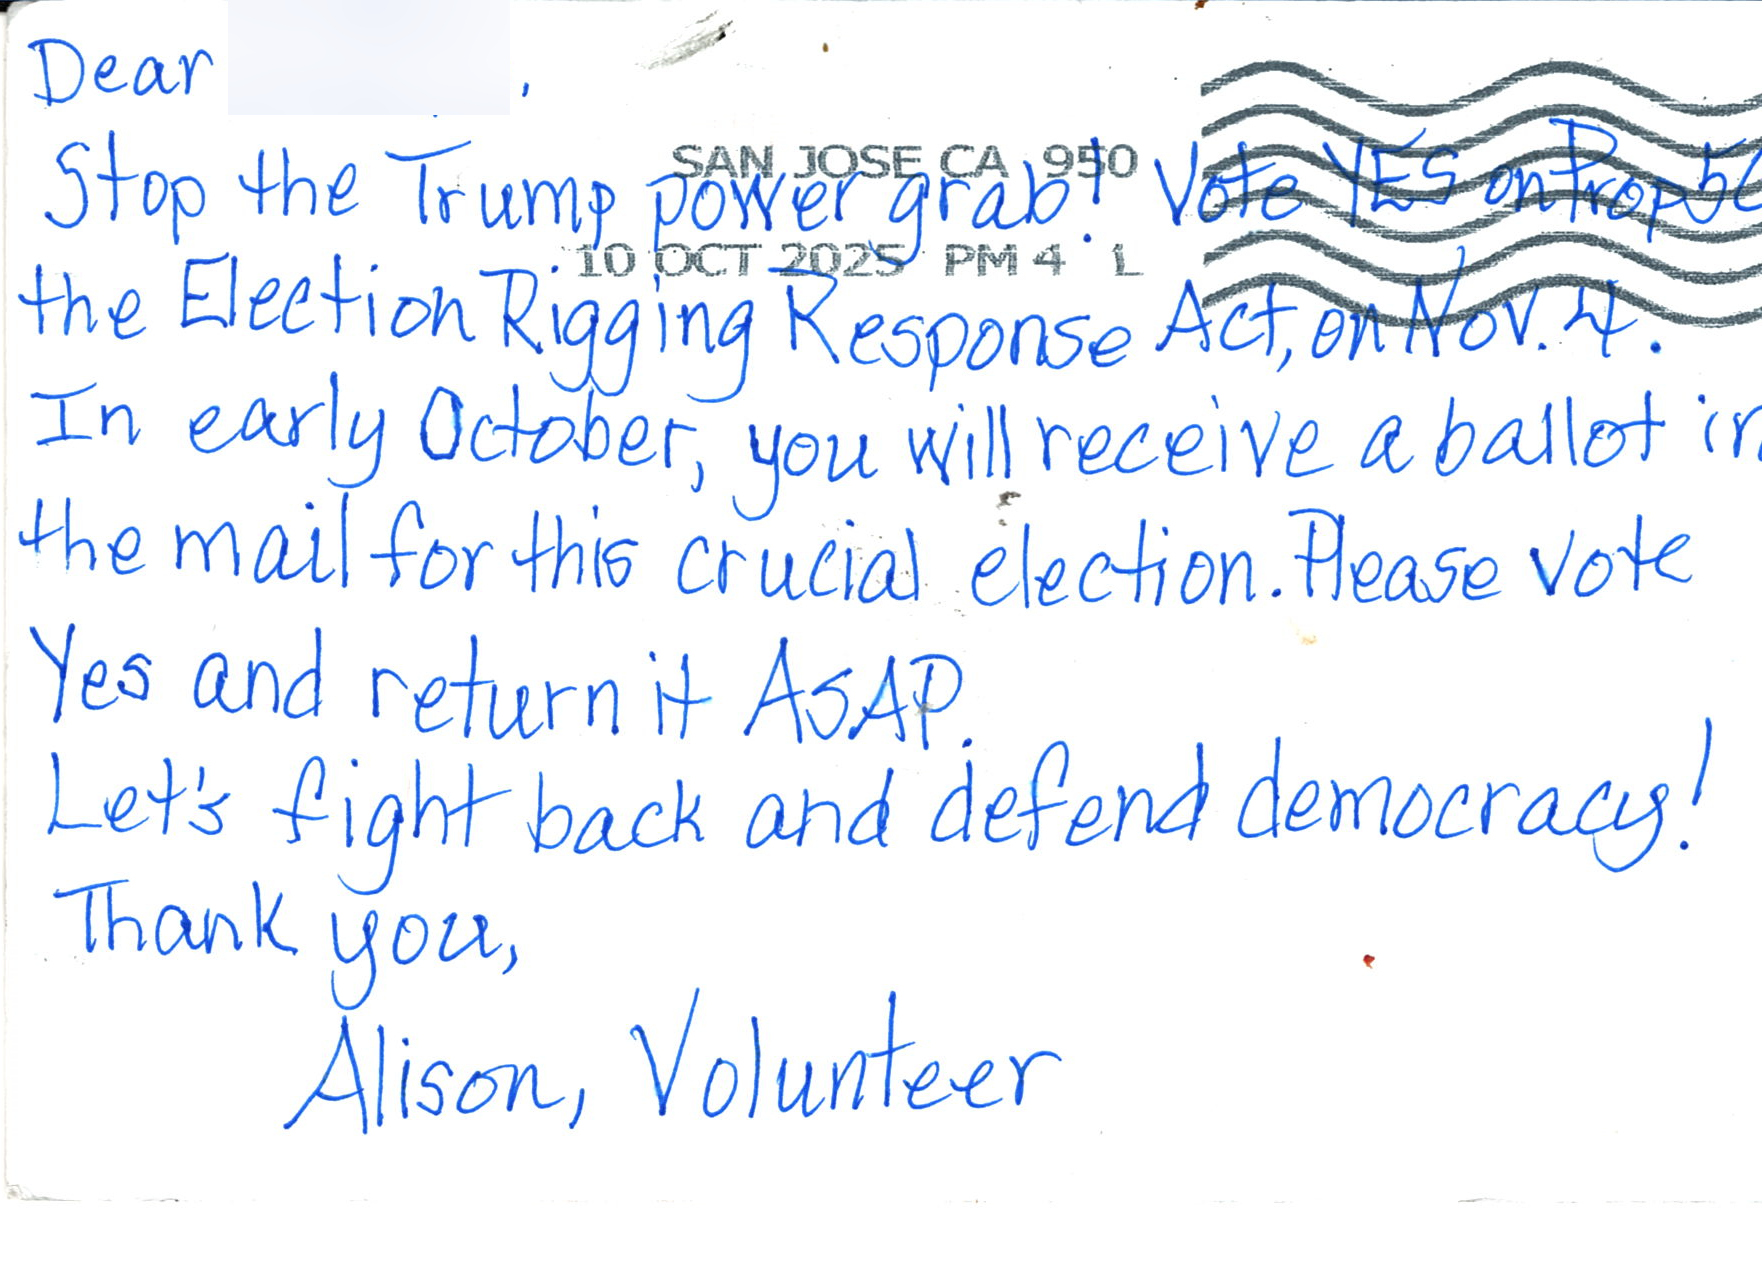 Dear ,
SAN JOSE CA 950
Stop the Trump power grab! Vote YES on Prop 50
10 OCT 2025 PM 4 L
the Election Rigging Response Act, on Nov. 4.
In early October, you will receive a ballot in
the mail for this crucial election. Please vote
Yes and return it ASAP.
Let's fight back and defend democracy!
Thank you,
Alison, Volunteer